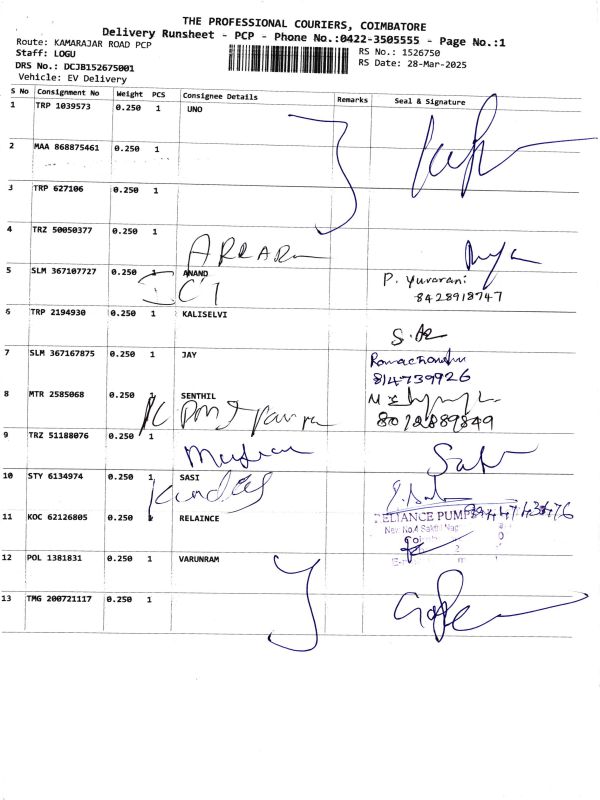 THE PROFESSIONAL COURIERS, COIMBATORE
Delivery Runsheet - PCP - Phone No.:0422-3505555 - Page No.:1
Route: KAMARAJAR ROAD PCP
Staff: LOGU
DRS No.: DCJB152675001
Vehicle: EV Delivery
RS No.: 1526750
RS Date: 28-Mar-2025
S No Consignment No Weight PCS Consignee Details Remarks Seal & Signature
1 TRP 1039573 0.250 1 UNO
2 MAA 868875461 0.250 1
3 TRP 627106 0.250 1
4 TRZ 50050377 0.250 1
5 SLM 367107727 0.250 1 ANAND P. Yuvarani
8428918747
6 TRP 2194930 0.250 1 KALISELVI
7 SLM 367167875 0.250 1 JAY Ramachandra
814739926
8 MTR 2585068 0.250 1 SENTHIL
8012889849
9 TRZ 51188076 0.250 1
10 STY 6134974 0.250 1 SASI
11 KOC 62126805 0.250 1 RELAINCE RELIANCE PUMP
New No.4 Sakthi Nag
12 POL 1381831 0.250 1 VARUNRAM
13 TMG 200721117 0.250 1